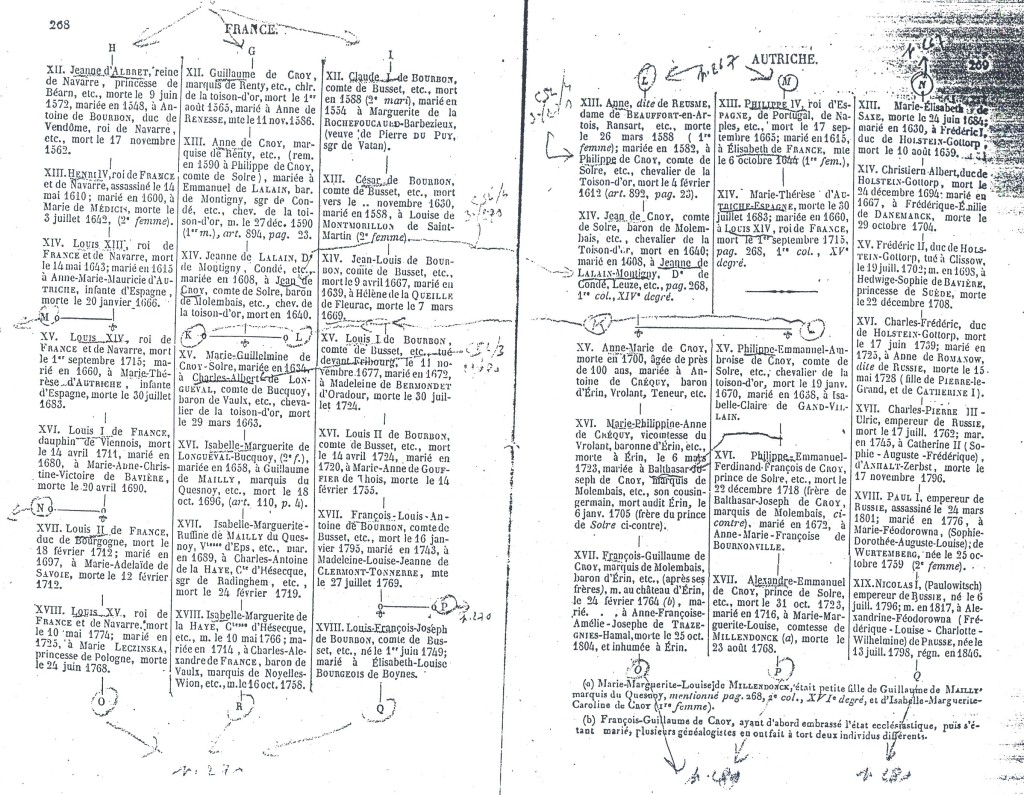 268
FRANCE.
H
XII. Jeanne d'ALBRET, reine
de Navarre, princesse de
Béarn, etc., morte le 9 juin
1572, mariée en 1548, à An-
toine de BOURBON, duc de
Vendôme, roi de Navarre,
etc., mort le 17 novembre
1562.
XIII. HENRI IV, roi de FRANCE
et de Navarre, assassiné le 14
mai 1610; marié en 1600, à
Marie de MÉDICIS, morte le
3 juillet 1642, (2e femme).
XIV. Louis XIII, roi de
FRANCE et de Navarre, mort
le 14 mai 1643; marié en 1615
à Anne-Marie-Mauricie d'AU-
TRICHE, infante d'Espagne,
morte le 20 janvier 1666.
M
XV. Louis XIV, roi de
FRANCE et de Navarre, mort
le 1er septembre 1715; ma-
rié en 1660, à Marie-Thé-
rèse d'AUTRICHE, infante
d'Espagne, morte le 30 juillet
1683.
XVI. Louis I de FRANCE,
dauphin de Viennois, mort
le 14 avril 1711, marié en
1680, à Marie-Anne-Chris-
tine-Victoire de BAVIÈRE,
morte le 20 avril 1690.
N
XVII. Louis II de FRANCE,
duc de Bourgogne, mort le
18 février 1712; marié en
1697, à Marie-Adelaïde de
SAVOIE, morte le 12 février
1712.
XVIII. Louis XV, roi de
FRANCE et de Navarre, mort
le 10 mai 1774; marié en
1725, à Marie LECZINSKA,
princesse de Pologne, morte
le 24 juin 1768.
O
G
XII. Guillaume de CROY,
marquis de Renty, etc., chlr.
de la toison-d'or, mort le 1er
août 1565, marié à Anne de
RENESSE, mte le 11 nov. 1586.
XIII. Anne de CROY, mar-
quise de Renty, etc., (rem.
en 1590 à Philippe de CROY,
comte de Solre), mariée à
Emmanuel de LALAIN, bar.
de Montigny, sgr de Con-
dé, etc., chev. de la toi-
son-d'or, m. le 27 déc. 1590
(1er m.), art. 894, pag. 23.
XIV. Jeanne de LALAIN, De
de Montigny, Condé, etc.,
mariée en 1608, à Jean de
CROY, comte de Solre, baron
de Molembais, etc., chev. de
la toison-d'or, mort en 1640.
K L
XV. Marie-Guillelmine de
CROY-Solre, mariée en 1634,
à Charles-Albert de LON-
GUEVAL, comte de Bucquoy,
baron de Vaulx, etc., cheva-
lier de la toison-d'or, mort
le 29 mars 1663.
XVI. Isabelle-Marguerite de
LONGUEVAL-Bucquoy, (2e f.),
mariée en 1658, à Guillaume
de MAILLY, marquis du
Quesnoy, etc., mort le 18
oct. 1696, (art. 110, p. 4).
XVII. Isabelle-Marguerite-
Ruffine de MAILLY du Ques-
noy, Vtesse d'Eps, etc., mar.
en 1689, à Charles-Antoine
de la HAYE, Cte d'Hésecque,
sgr de Radinghem, etc.,
mort le 24 février 1719.
XVIII. Isabelle-Marguerite de
la HAYE, Ctesse d'Hésecque,
etc., m. le 10 mai 1766; ma-
riée en 1714, à Charles-Ale-
xandre de FRANCE, baron de
Vaulx, marquis de Noyelles-
Wion, etc., m. le 16 oct. 1758.
R
I
XII. Claude I de BOURBON,
comte de Busset, etc., mort
en 1588 (2e mari), marié en
1554 à Marguerite de la
ROCHEFOUCAULD-Barbezieux,
(veuve de Pierre DU PUY,
sgr de Vatan).
XIII. César de BOURBON,
comte de Busset, etc., mort
vers le .. novembre 1630,
marié en 1558, à Louise de
MONTMORILLON de Saint-
Martin (2e femme).
XIV. Jean-Louis de BOUR-
BON, comte de Busset, etc.,
mort le 9 avril 1667, marié en
1639, à Hélène de la QUEILLE
de Fleurac, morte le 7 mars
1669.
XV. Louis I de BOURBON,
comte de Busset, etc., tué
devant Fribourg, le 11 no-
vembre 1677, marié en 1672,
à Madeleine de BERMONDET
d'Oradour, morte le 30 juil-
let 1724.
XVI. Louis II de BOURBON,
comte de Busset, etc., mort
le 14 avril 1724, marié en
1720, à Marie-Anne de GOUF-
FIER de Thois, morte le 14
février 1755.
XVII. François-Louis-An-
toine de BOURBON, comte de
Busset, etc., mort le 16 jan-
vier 1795, marié en 1743, à
Madeleine-Louise-Jeanne de
CLERMONT-TONNERRE, mte
le 27 juillet 1769.
P
p. 220
XVIII. Louis-François-Joseph
de BOURBON, comte de Bus-
set, etc., né le 1er juin 1749;
marié à Élisabeth-Louise
BOURGEOIS de Boynes.
Q
p. 271
AUTRICHE.
269
L
p. 267
M
XIII. Anne, dite de REUSME,
dame de BEAUFFORT-en-Ar-
tois, Ransart, etc., morte
le 26 mars 1588 (1re
femme); mariée en 1582, à
Philippe de CROY, comte de
Solre, etc., chevalier de la
Toison-d'or, mort le 4 février
1612 (art. 892, pag. 23).
XIV. Jean de CROY, comte
de Solre, baron de Molem-
bais, etc., chevalier de la
Toison-d'or, mort en 1640;
marié en 1608, à Jeanne de
LALAIN-Montigny, De de
Condé, Leuze, etc., pag. 268,
1re col., XIVe degré.
K L
XV. Anne-Marie de CROY,
morte en 1700, âgée de près
de 100 ans, mariée à An-
toine de CRÉQUY, baron
d'Érin, Vrolant, Teneur, etc.
XVI. Marie-Philippine-Anne
de CRÉQUY, vicomtesse du
Vrolant, baronne d'Érin, etc.,
morte à Érin, le 6 mars
1723, mariée à Balthasar-Jo-
seph de CROY, marquis de
Molembais, etc., son cousin-
germain, mort audit Érin, le
6 janv. 1705 (frère du prince
de Solre ci-contre).
XVII. François-Guillaume de
CROY, marquis de Molembais,
baron d'Érin, etc., (après ses
frères), m. au château d'Érin,
le 24 février 1764 (b), ma-
rié. . . à Anne-Françoise-
Amélie-Josophe de TRAZE-
GNIES-Hamal, morte le 25 oct.
1804, et inhumée à Érin.
O
XIII. PHILIPPE IV, roi d'Es-
PAGNE, de Portugal, de Na-
ples, etc., mort le 17 sep-
tembre 1665; marié en 1615,
à Élisabeth de FRANCE, mte
le 6 octobre 1644 (1re fem.).
XIV. Marie-Thérèse d'AU-
TRICHE-ESPAGNE, morte le 30
juillet 1683; mariée en 1660,
à LOUIS XIV, roi de FRANCE,
mort le 1er septembre 1715,
pag. 268, 1re col., XVe
degré.
XV. Philippe-Emmanuel-Am-
broise de CROY, comte de
Solre, etc., chevalier de la
toison-d'or, mort le 19 janv.
1670, marié en 1638, à Isa-
belle-Claire de GAND-VIL-
LAIN.
XVI. Philippe-Emmanuel-
Ferdinand-François de CROY,
prince de Solre, etc., mort le
22 décembre 1718 (frère de
Balthasar-Joseph de CROY,
marquis de Molembais, ci-
contre), marié en 1672, à
Anne-Marie-Françoise de
BOURNONVILLE.
XVII. Alexandre-Emmanuel
de CROY, prince de Solre,
etc., mort le 31 oct. 1723,
marié en 1716, à Marie-Mar-
guerite-Louise, comtesse de
MILLENDONCK (a), morte le
23 août 1768.
P
N
XIII. Marie-Élisabeth de
SAXE, morte le 24 juin 1684;
mariée en 1630, à Frédéric I,
duc de HOLSTEIN-Gottorp,
mort le 10 août 1659.
XIV. Christiern-Albert, duc de
HOLSTEIN-Gottorp, mort le
24 décembre 1694; marié en
1667, à Frédérique-Émilie
de DANEMARCK, morte le
29 octobre 1704.
XV. Frédéric II, duc de HOLS-
TEIN-Gottorp, tué à Clissow,
le 19 juill. 1702; m. en 1698, à
Hedwige-Sophie de BAVIÈRE,
princesse de SUÈDE, morte
le 22 décembre 1708.
XVI. Charles-Frédéric, duc
de HOLSTEIN-Gottorp, mort
le 17 juin 1739; marié en
1725, à Anne de ROMANOW,
dite de RUSSIE, morte le 15
mai 1728 (fille de PIERRE-le-
Grand, et de CATHERINE I).
XVII. Charles-PIERRE III-
Ulric, empereur de RUSSIE,
mort le 17 juill. 1762; mar.
en 1745, à Catherine II (So-
phie-Auguste-Frédérique),
d'ANHALT-Zerbst, morte le
17 novembre 1796.
XVIII. PAUL I, empereur de
RUSSIE, assassiné le 24 mars
1801; marié en 1776, à
Marie-Féodorowna, (Sophie-
Dorothée-Auguste-Louise); de
WURTEMBERG, née le 25 oc-
tobre 1759 (2e femme).
XIX. NICOLAS I, (Paulowitsch)
empereur de RUSSIE, né le 6
juil. 1796; m. en 1817, à Ale-
xandrine-Féodorowna (Fré-
dérique-Louise-Charlotte-
Wilhelmine) de PRUSSE, née le
13 juill. 1798, régn. en 1846.
Q
(a) Marie-Marguerite-Louise de MILLENDONCK, était petite fille de Guillaume de MAILLY
marquis du Quesnoy, mentionné pag. 268, 2e col., XVIe degré, et d'Isabelle-Marguerite-
Caroline de CROY (1re femme).
(b) François-Guillaume de CROY, ayant d'abord embrassé l'état ecclésiastique, puis s'é-
tant marié, plusieurs généalogistes en ont fait à tort deux individus différents.